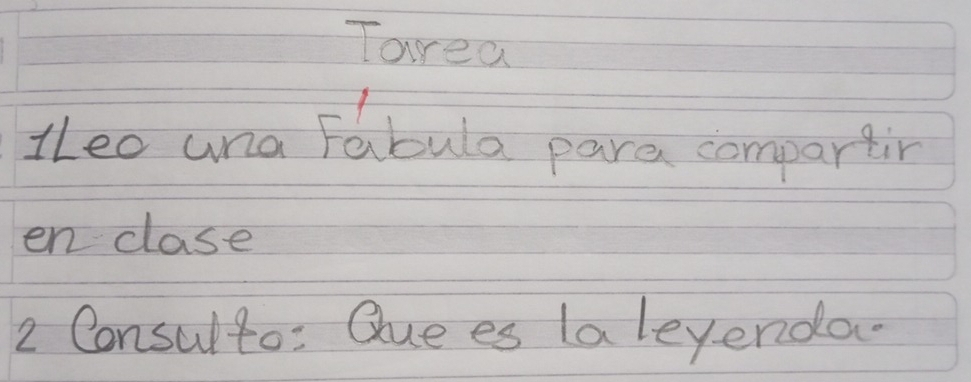 Tarea
1Leo una Fábula para compartir
en clase
2 Consulto: Que es la leyenda.